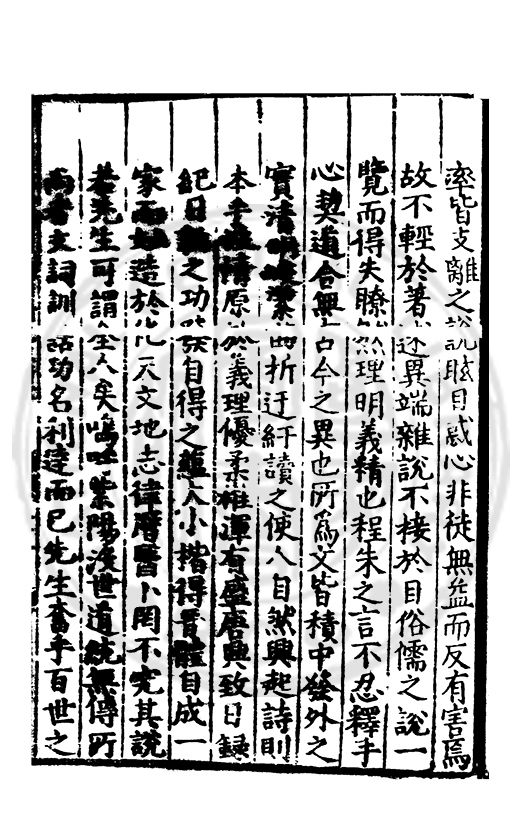 率皆支離之說眩目惑心非徒無益而反有害焉
故不輕於著述異端雜說不接於目俗儒之說一
覽而得失瞭然理明義精也程朱之言不忍釋手
心契道合無古今之異也所為文皆積中發外之
實清明曲折迂紆讀之使人自然興起詩則
本乎性情原於義理優柔雄渾有盛唐興致日錄
紀日之功發自得之蘊人小揩得晉體自成一
家而造於化天文地志律曆醫卜罔不究其說
若先生可謂全人矣嗚呼紫陽沒世道統無傳所
尚者文詞訓詁功名利達而已先生奮乎百世之